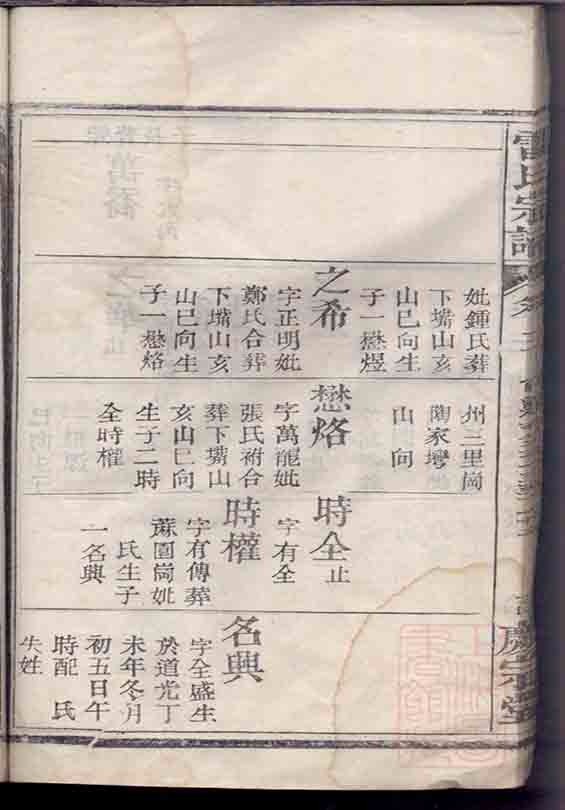 雷氏宗譜
妣鍾氏葬
下嘴山亥
山巳向生
子一懋煜
之希
字正明妣
鄭氏合葬
下嘴山亥
山巳向生
子一懋烙
州三里崗
陶家灣
山 向
懋烙
字萬龍妣
張氏祔合
葬下嘴山
亥山巳向
生子二時
全時權
時全止
字有全
時權
字有傳葬
蔴園崗妣
氏生子
一名興
名興
字全盛生
於道光丁
未年冬月
初五日午
時配 氏
失姓